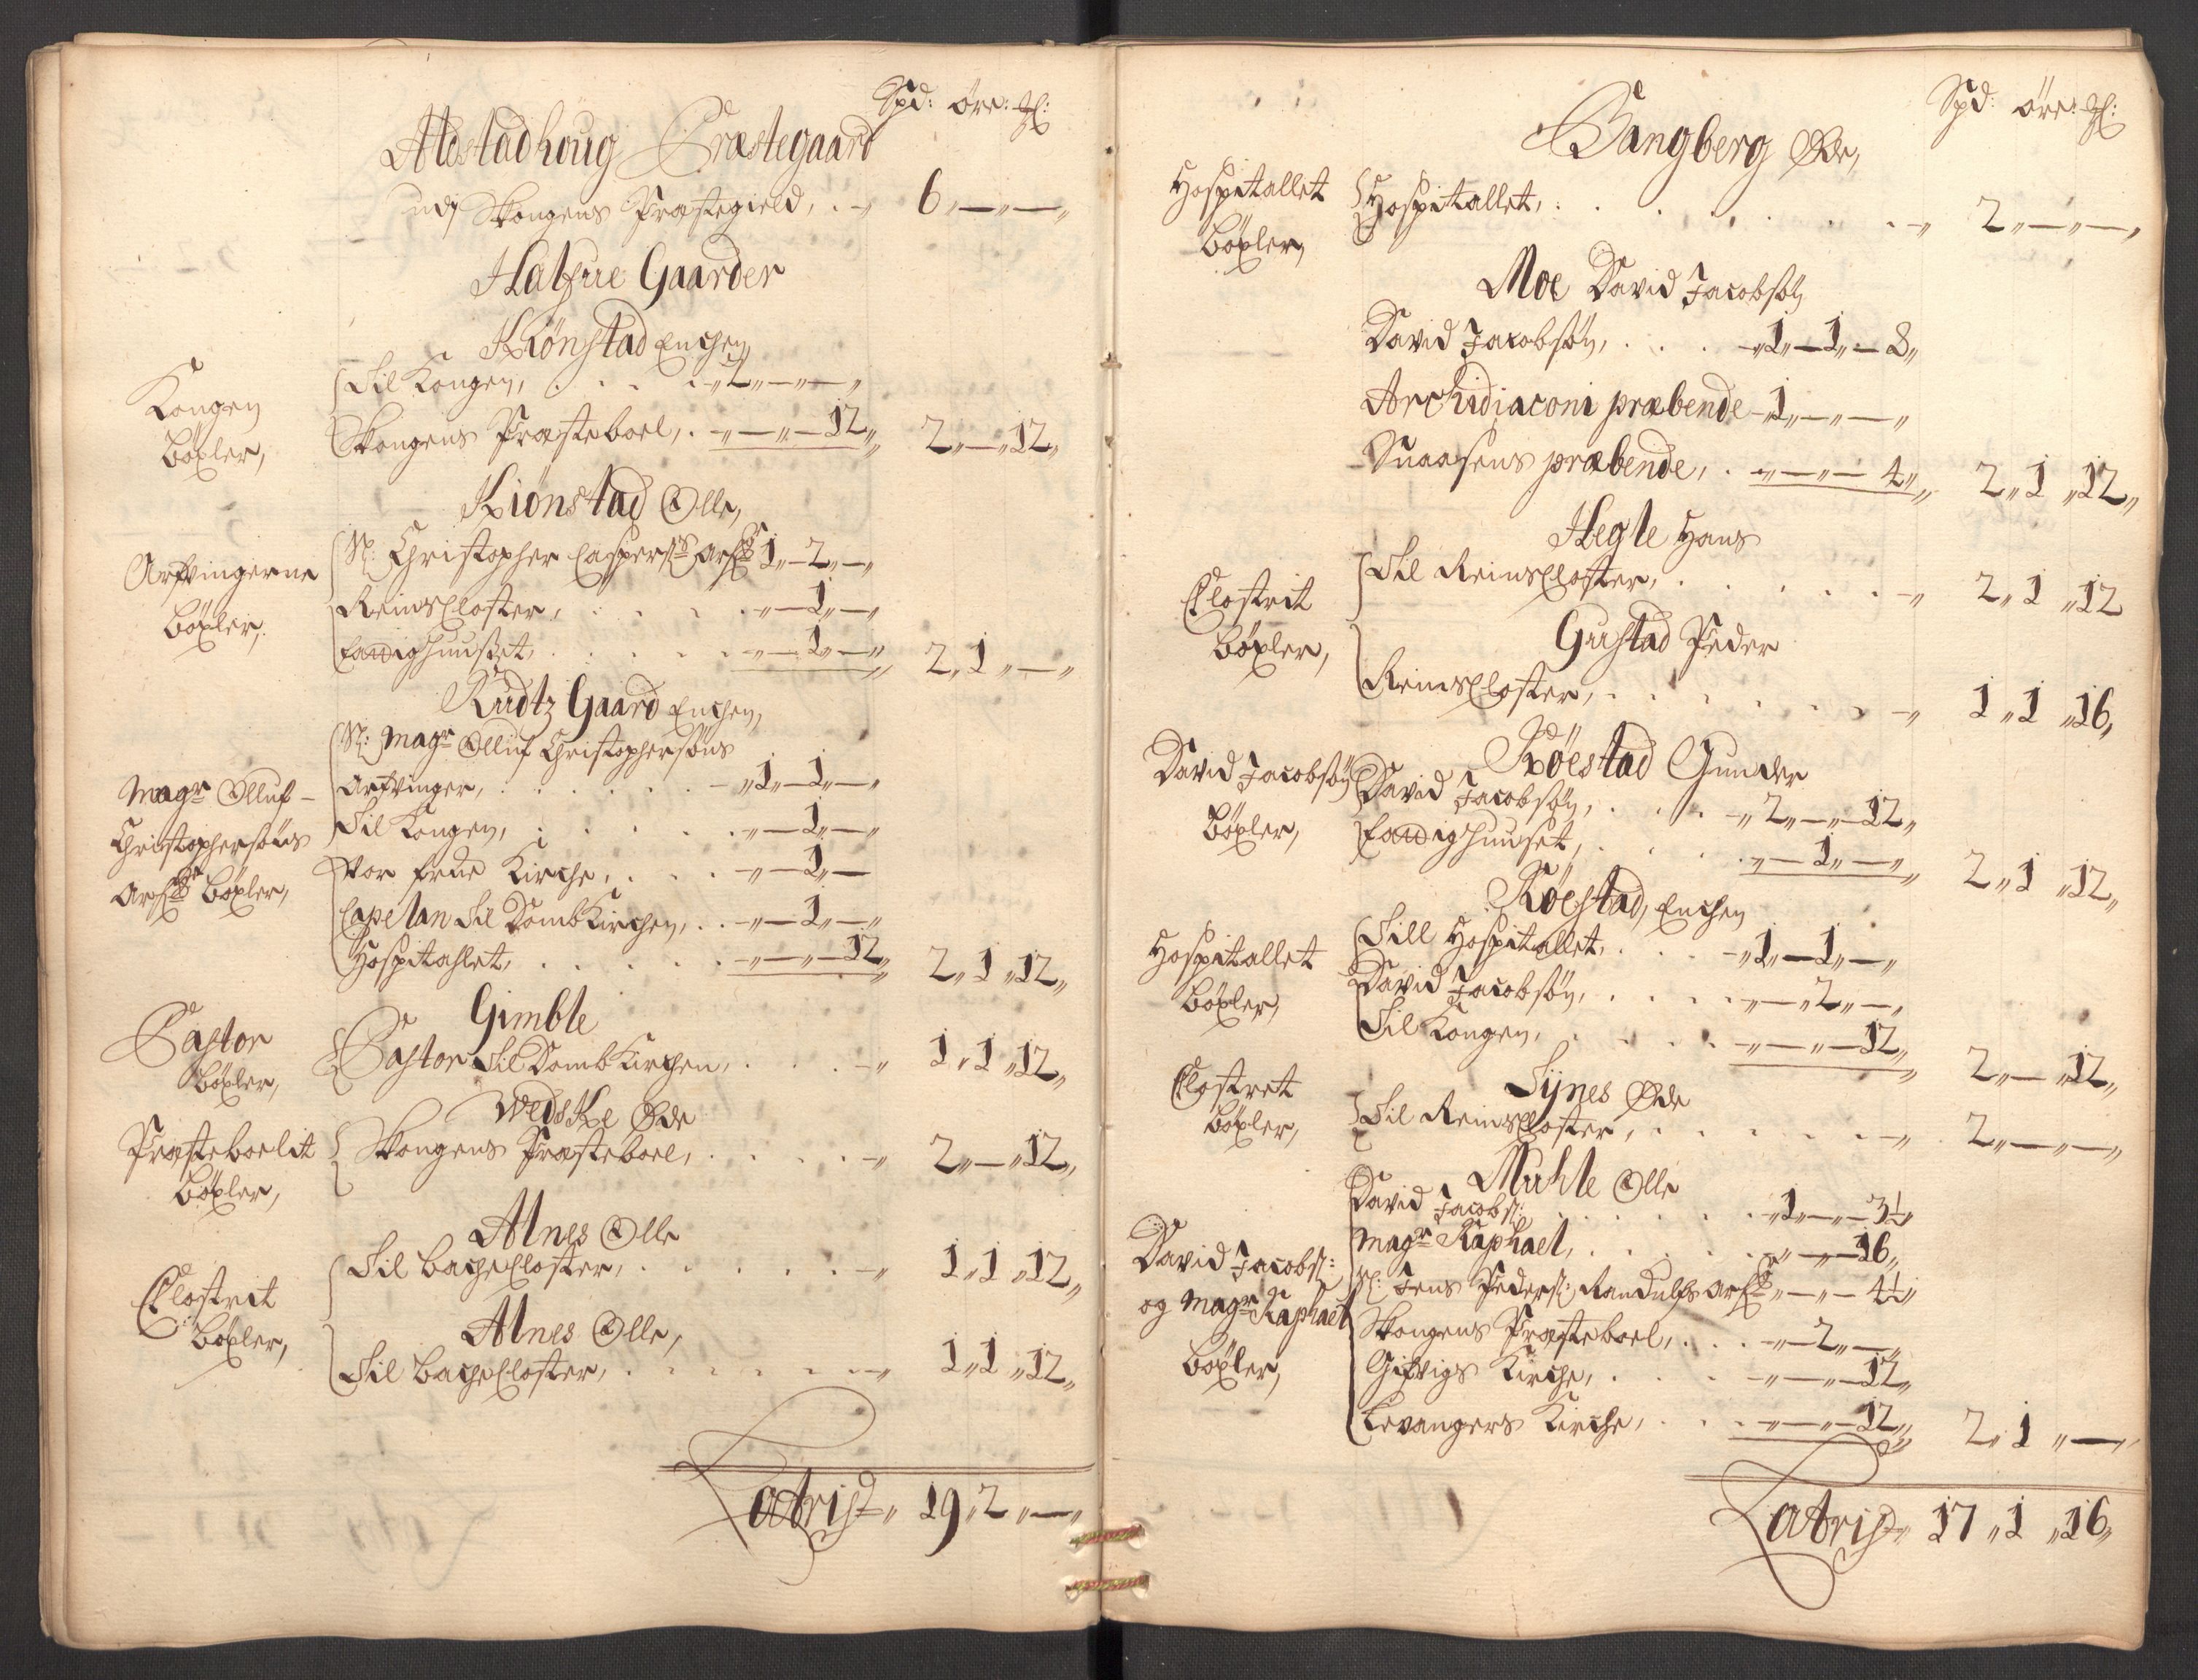 Spd: öre: ßl:
Alostadhoug Præstegaard
udj Skongens Præstegield, . „ 6 „ — „ — „
Halfue Gaarder
Kiönstad Enchen
Kongen
Böxler,
Til Kongen, . . . „ 2 „ — „ — „
Skongens Præsteboel, . „ — „ — 12 „ 2 „ — „ 12 „
Kiönstad Olle,
Arfvingerne
Böxler,
Sl: Christopher Caspers: Arf: 1 „ 2 „ — „
ReinsCloster, . . . „ — 1 „ — „
Fattighuuset, . . . „ — 1 „ — „ 2 „ 1 „ — „
Rudtz Gaard Enchen,
Magr Olluf
Christophersöns
Arf: Böxler,
Sl: Magr Olluf Christophersöns
Arfvinger, . . . „ 1 „ 1 „ — „
Til Kongen, . . . „ — 1 „ — „
Vor frue Kirche, . . . „ — 1 „ —
Capelan Til DombKirchen, . . „ — 1 „ — „
Hospitahlet, . . . „ — „ — 12 „ 2 „ 1 „ 12 „
Gimble
Pastor
Böxler,
Pastor Til DombKirchen, . . . „ 1 „ 1 „ 12 „
Wedske Øde
Præsteboelit
Böxler,
Skongens Præsteboel, . . . „ 2 „ — „ 12 „
Alnes Olle
Clostrit
Böxler,
Til BacheCloster, . . . „ 1 „ 1 „ 12 „
Alnes Olle,
Til BacheCloster, . . . „ 1 „ 1 „ 12 „
Latris „ 19 „ 2 „ — „
Spd: öre: ßl:
Bangberg Øde,
Hospitallet
Böxler,
Hospitallet, . . . „ 2 „ — „ — „
Moe David Jacobsön
David Jacobsön, . . . „ 1 „ — 1 „ — 8 „
Archidiaconi præbende „ 1 „ — „ — „
Snaasens præbende, . „ — „ — 4 „ 2 „ 1 „ 12 „
Hegle Hans
Clostrit
Böxler,
Til ReinsCloster, . . . „ 2 „ 1 „ 12
Gustad Peder
ReinsCloster, . . . „ 1 „ 1 „ 16 „
Röestad Gunder
David Jacobsön
Böxler,
David Jacobsön, . . . „ 2 „ — „ 12 „
Fattighuuset, . . . „ — 1 „ — „ 2 „ 1 „ 12 „
Röestad, Enchen
Hospitallet
Böxler,
Till Hospitallet, . . . „ 1 „ — 1 „ — „
David Jacobsön, . . . „ — „ 2 „ — „
Til Kongen, . . . „ — „ — 12 „ 2 „ — „ 12 „
Tÿnes Øde
Clostret
Böxler,
Til ReinsCloster, . . . „ 2 „ — „ — „
Muhle Olle
David Jacobs:
og Magr Raphael
Böxler,
David Jacobs: . . . „ 1 „ — „ — 3½ „
Magr Raphael, . . . „ — „ — 16 „
Sl: Jens Peders: Randulfs Arf: „ — „ — 4½ „
Skongens Præsteboel, . . . „ — 2 „ — „
Gifvigs Kirche, . . . „ — „ — 12 „
Levangers Kirche, . . . „ — „ — 12 „ 2 „ 1 „ — „
Latris „ 17 „ 1 „ 16 „